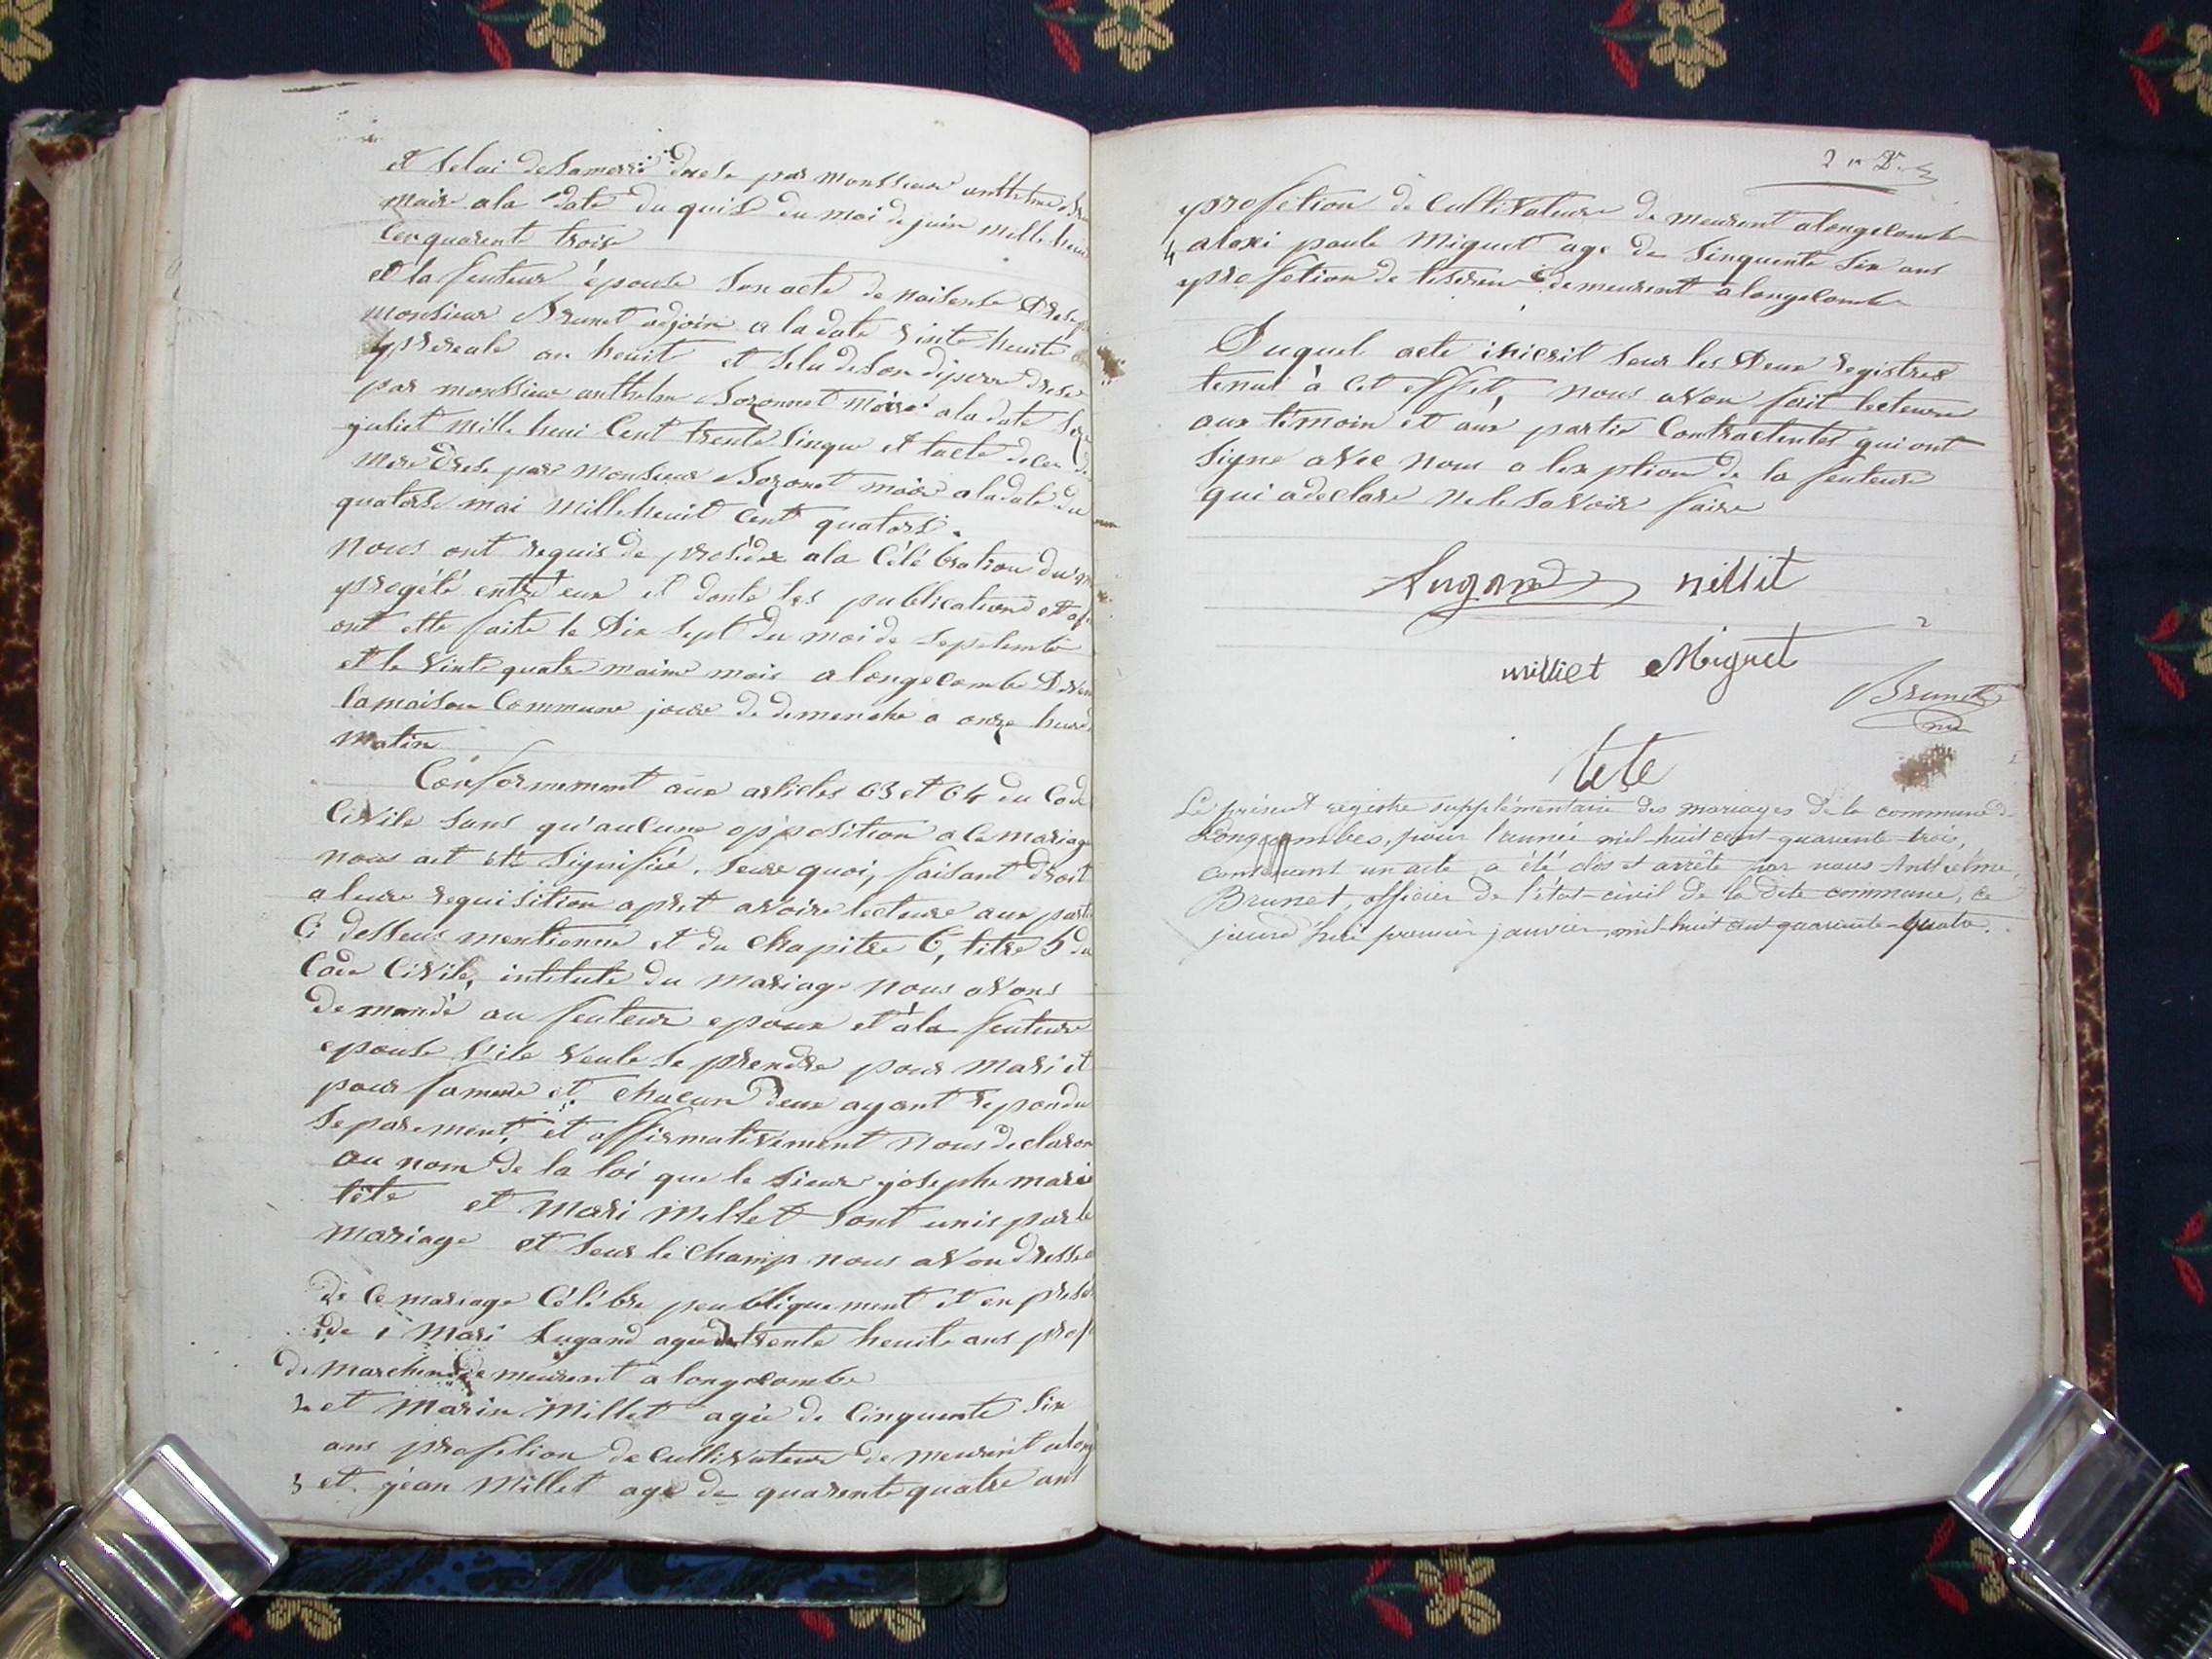 et selui de sa merre drese par monssieur anthelme
maire a la date du quise du moi de juin mille heui
cen quarente trois
et la feuteur épouse son acte de naisense drese
monsieur Brunet adjoin a la date vinte heuit
prereale an heuit et selu de son diperre drese
par monssieur anthelme Bozonnet maire a la date
juliet mille heui cent trente sinque et lacte de
mere drese par monsieur Bozonet maire a la date du
quatorse mai mille heuit cent quatorse.
nous ont requis de proséder a la célébration du
progété entre eux et donte les publications
ont ette faite le dix sept du moi de septembre
et le vinte quatre maime mois a longecombe
la maison commune jour de demenche a onze heure
matin
Conformement aux articles 63 et 64 du Code
Civile sans qu'aucune opposition a ce mariage
nous ait été signifiée. seur quoi, faisant droit
a leure requisition apret avoire lecture aux
Ci desseus mentionne et du chapitre 6, titre 5 du
Code Civile, intitute du mariage nous avons
demandé au feuteur epoux et à la feuteure
epouse s'ile veule se prendre pour mari et
pour famme et chacun deux ayant repondu
separement, et affirmativement nous declaron
au nom de la loi que le sieur josephe marie
tête et mari millet sont unis par le
mariage et seur le champ nous avon dresse
de ce mariage célébre peubliquement et en
de 1 mari Lugand agé de trente heuite ans
de marchend de meurent a longecombe
2 et marin Millet agée de Cinquente six
ans profetion de cultivateur de meurent a long
3 et jean Millet age de quarente quatre ans
profetion de cultivateur de meurent a longecombe
4 alexi paule Miguet age de sinquente six ans
profetion de tiserem demeurent a longecombe
Duquel acte inicrit seur les deux registres
tenut à cet effet, nous avon fait lecteure
aux témoin et aux partie contractentes qui ont
signe avec nous a lexption de la feuteure
qui a declare ne le savoir faire
Lugand millit
milliet Miguet
Brunet
tete
Le présent registre supplémentaire des mariages de la commune de
Longecombes, pour l'année mil-huit cent quarente trois,
contenant un acte a été clos et arrêté par nous Anthelme
Brunet, officier de l'état-civil de la dite commune, ce
jourd'hui premier janvier, mil-huit cent quarente-quatre.